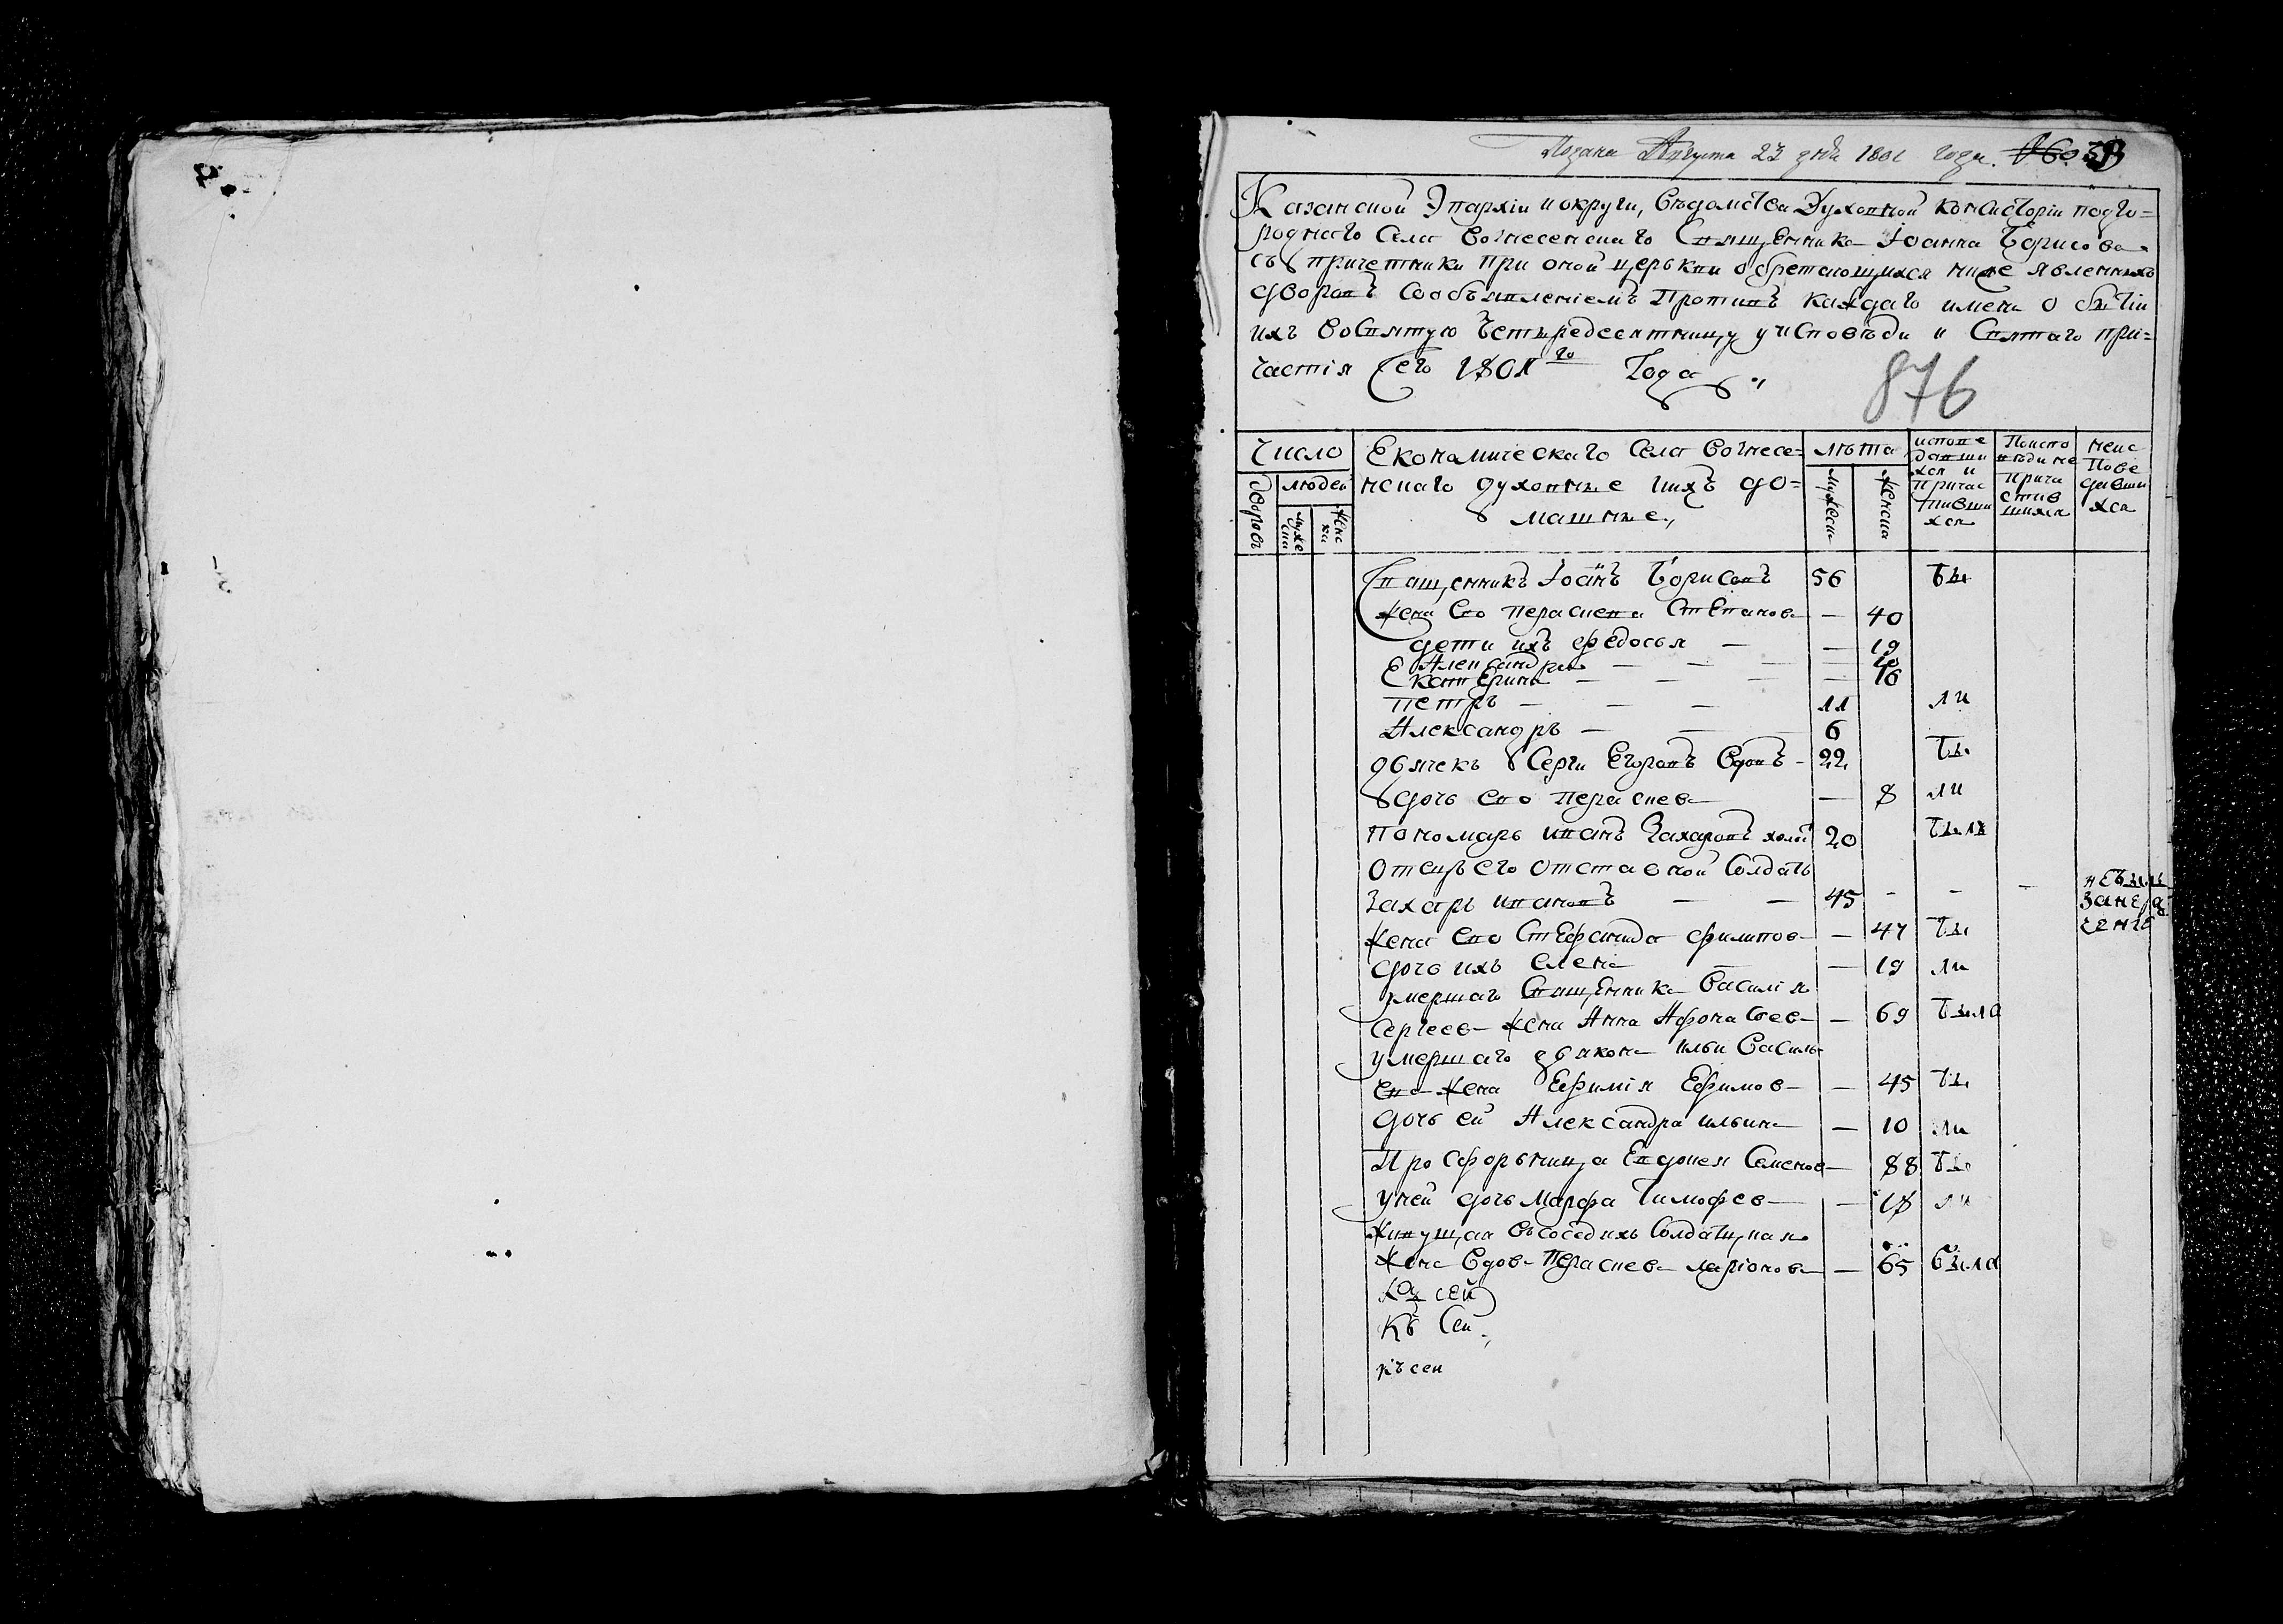 Подана Августа 23 дня 1801 года.
Казанской Эпархіи и округи, Ведомства Духовной консисторіи подго=
родного Села Вознесенскаго Священника Іоанна Борисова
съ причетники при оной церькви обретающихся ниже явленныхъ
дворовъ Сообъявленіемъ Противъ каждаго имени о бытіи
ихъ воСвятую Четыредесятницу уисповѣди и Святаго при=
частія Сего 1801го Года
876
Число
дворовъ
людей
мужеска
женска
Економическаго Села Вознесе=
нскаго духовные иихъ до=
машные,
лѣта
мужеска
женска
исповедавшихся и Причастившихся
Поисповѣди не Причастившихся
неисповедавшихся
Священникъ Іоаннъ Борисовъ 56 Бы
жена Ево Пераскева Степанова — 40
дети ихъ Федосья — — 19
Александра — — — —
Екатерина — — — — 16
Петръ — — — 11 ли
Александръ — — 6
дьячекъ Серги Егоровъ Вдовъ - 22 Бы
дочь Ево Пераскева — 8 ли
Пономарь Иванъ Захаровъ холос 20 Были
Отецъ его отставной Солдатъ
Захаръ Ивановъ — — 45 - - - небылъ
жена Ево Стефанида Филипова — 47 Бы
дочь ихъ Елена — — 19 ли
умершаго Священника Василія
Сергеева жена Анна Афонасьева — 69 Была
умершаго дьякона Ильи Василь
ева жена Ефимія Ефимова — 45 Бы
дочь ей Александра Ильина — 10 ли
Просфорьница Евдокея Семенова — 88 Бы
уней дочь Марфа Тимофева — 18 ли
живущая въсоседихъ Солдацкая
жена Вдова Пераскева Ларіонова — 65 была
къ сей
Къ Сей
къ сей